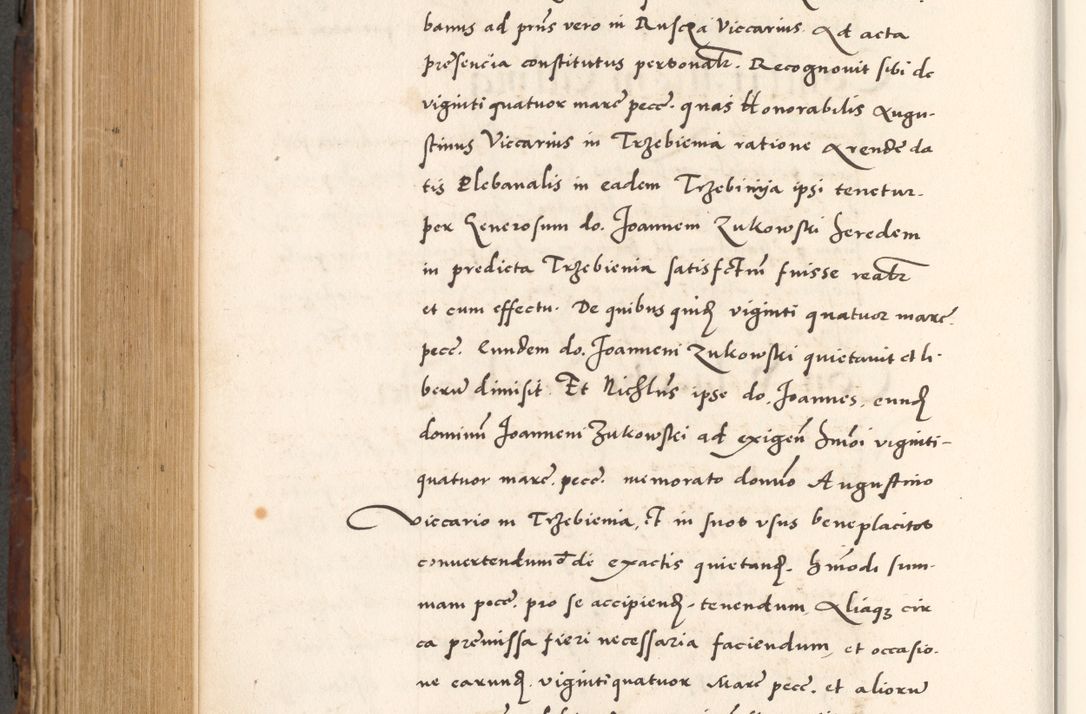 banus ad prñs vero in Ruscza Viccarius. Ad acta
presencia constitutus personalr. Recognovit sibi de
viginti quatuor marc pecc. quas Honorabilis Augu-
stinus Viccarius in Trzebienia ratione Arende da
tis Plebanalis in eadem Trzebinija ipsi tenetur.
per Generosum do. Joannem Zukowski heredem
in predicta Trzebienia satisfctm fuisse realr
et cum effectu. De quibus quidz viginti quatuor marc.
pecc. Eundem do. Joannem Zukowski quietavit et li-
berū dimisit. Et Nichlūs ipse do. Joannes, eundz
dominū Joannem Zukowski ad exigen hmōi viginti-
quatuor marc. pecc. memorato domno Augustino
Viccario in Trzebienia, et in suos vsus beneplacitos
convertendum de exactis quietandz. hmōdi sum-
mam pecc. pro se accipiendz. tenendum, Aliaqz cir
ca premissa fieri necessaria faciendum, et occasio-
ne earundz. vigintiquatuor Marc pecc. et aliorū